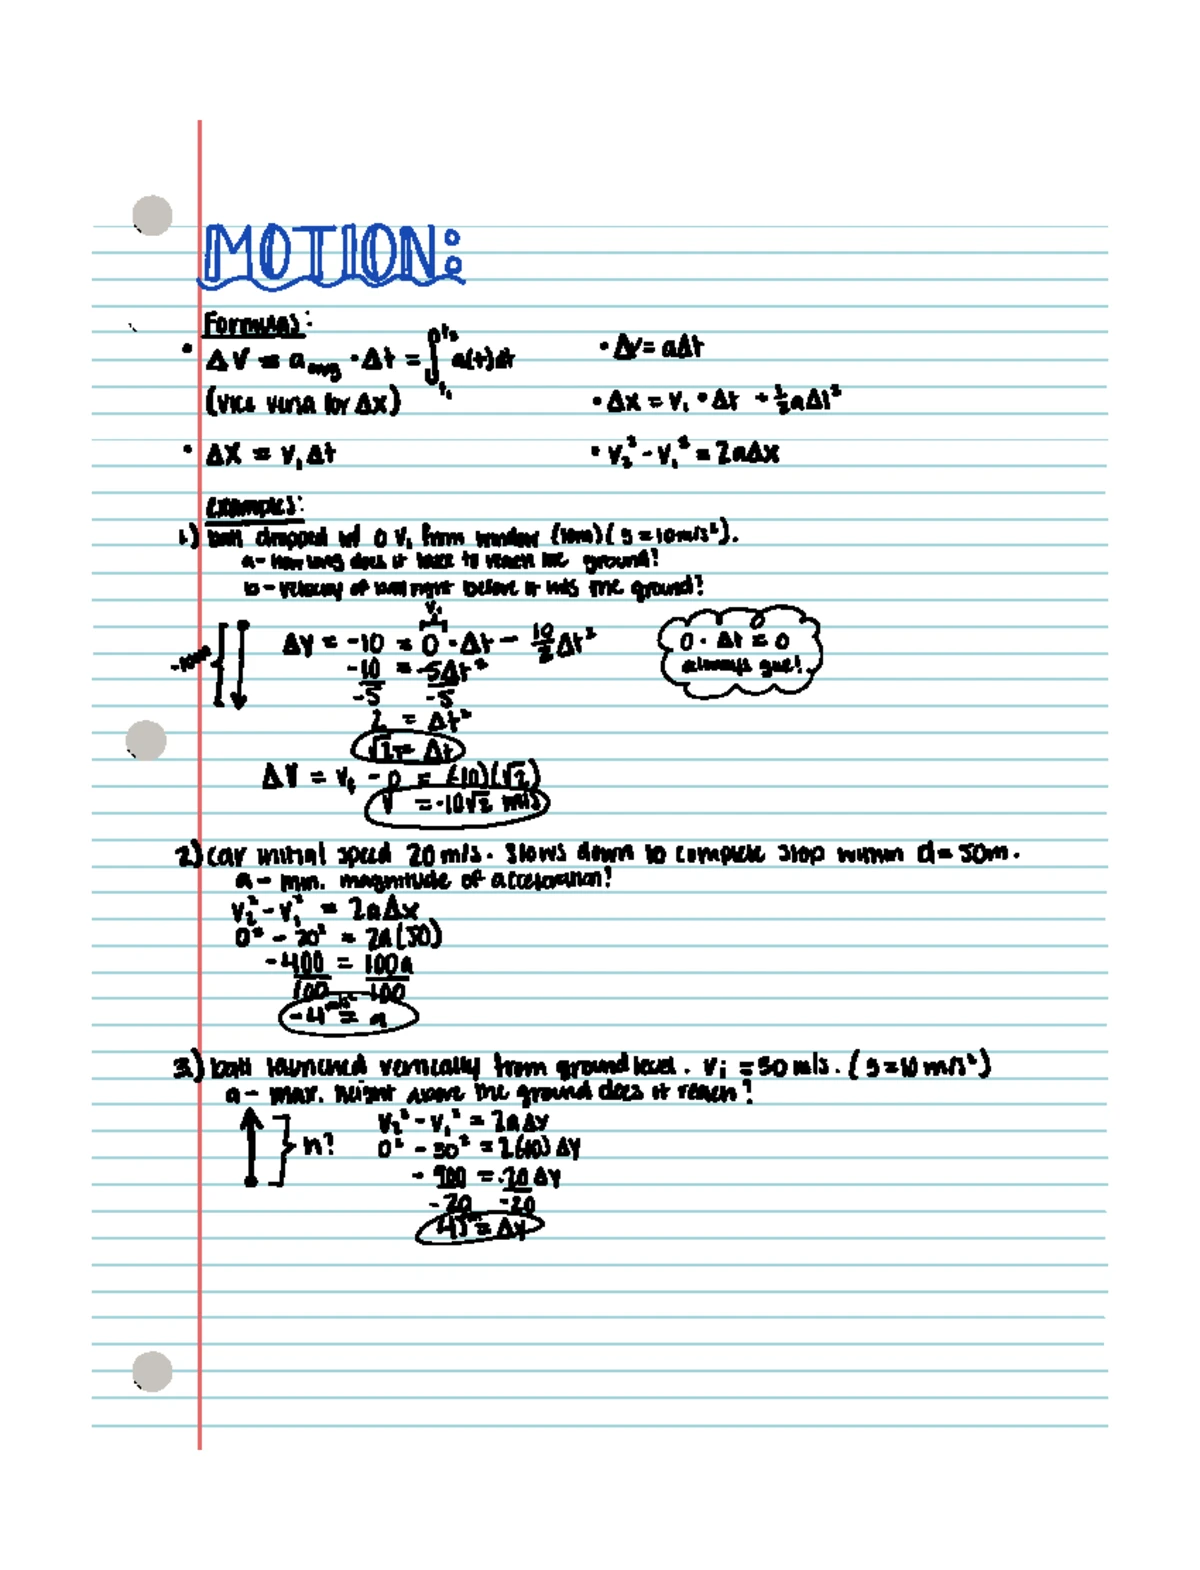 MOTION:
Formulas:
• ΔV = a avg · Δt = ∫ t₁ t₂ a(t)dt
• Δv = aΔt
(vice versa for Δx)
• Δx = v₁ · Δt + ½aΔt²
• ΔX = v₁Δt
• v₂² - v₁² = 2aΔx
Examples:
1.) ball dropped w/ 0 V₁ from window (10m) (g = 10m/s²).
a - how long does it take to reach the ground?
b - velocity of ball right before it hits the ground?
v₁
ΔY = -10 = 0 · Δt - 10/2 Δt²
0 · Δt = 0
-10m
-10 = -5Δt²
always
-5 -5
2 = Δt²
√2 = Δt
ΔV = Vf - 0 = (-10)(√2)
V = -10√2 m/s
2.) car initial speed 20 m/s. Slows down to complete stop within d = 50m.
a - min. magnitude of acceleration?
v₂² - v₁² = 2aΔx
0² - 20² = 2a(50)
-400 = 100a
100 100
-4 m/s² = a
3.) ball launched vertically from ground level. Vi = 30 m/s. (g = 10 m/s²)
a - max. height above the ground does it reach?
v₂² - v₁² = 2aΔy
h?
0² - 30² = 2(-10)ΔY
-900 = -20ΔY
-20 -20
45 m = Δy